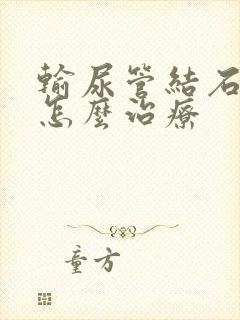 輸尿管結石
怎麼治療
童方